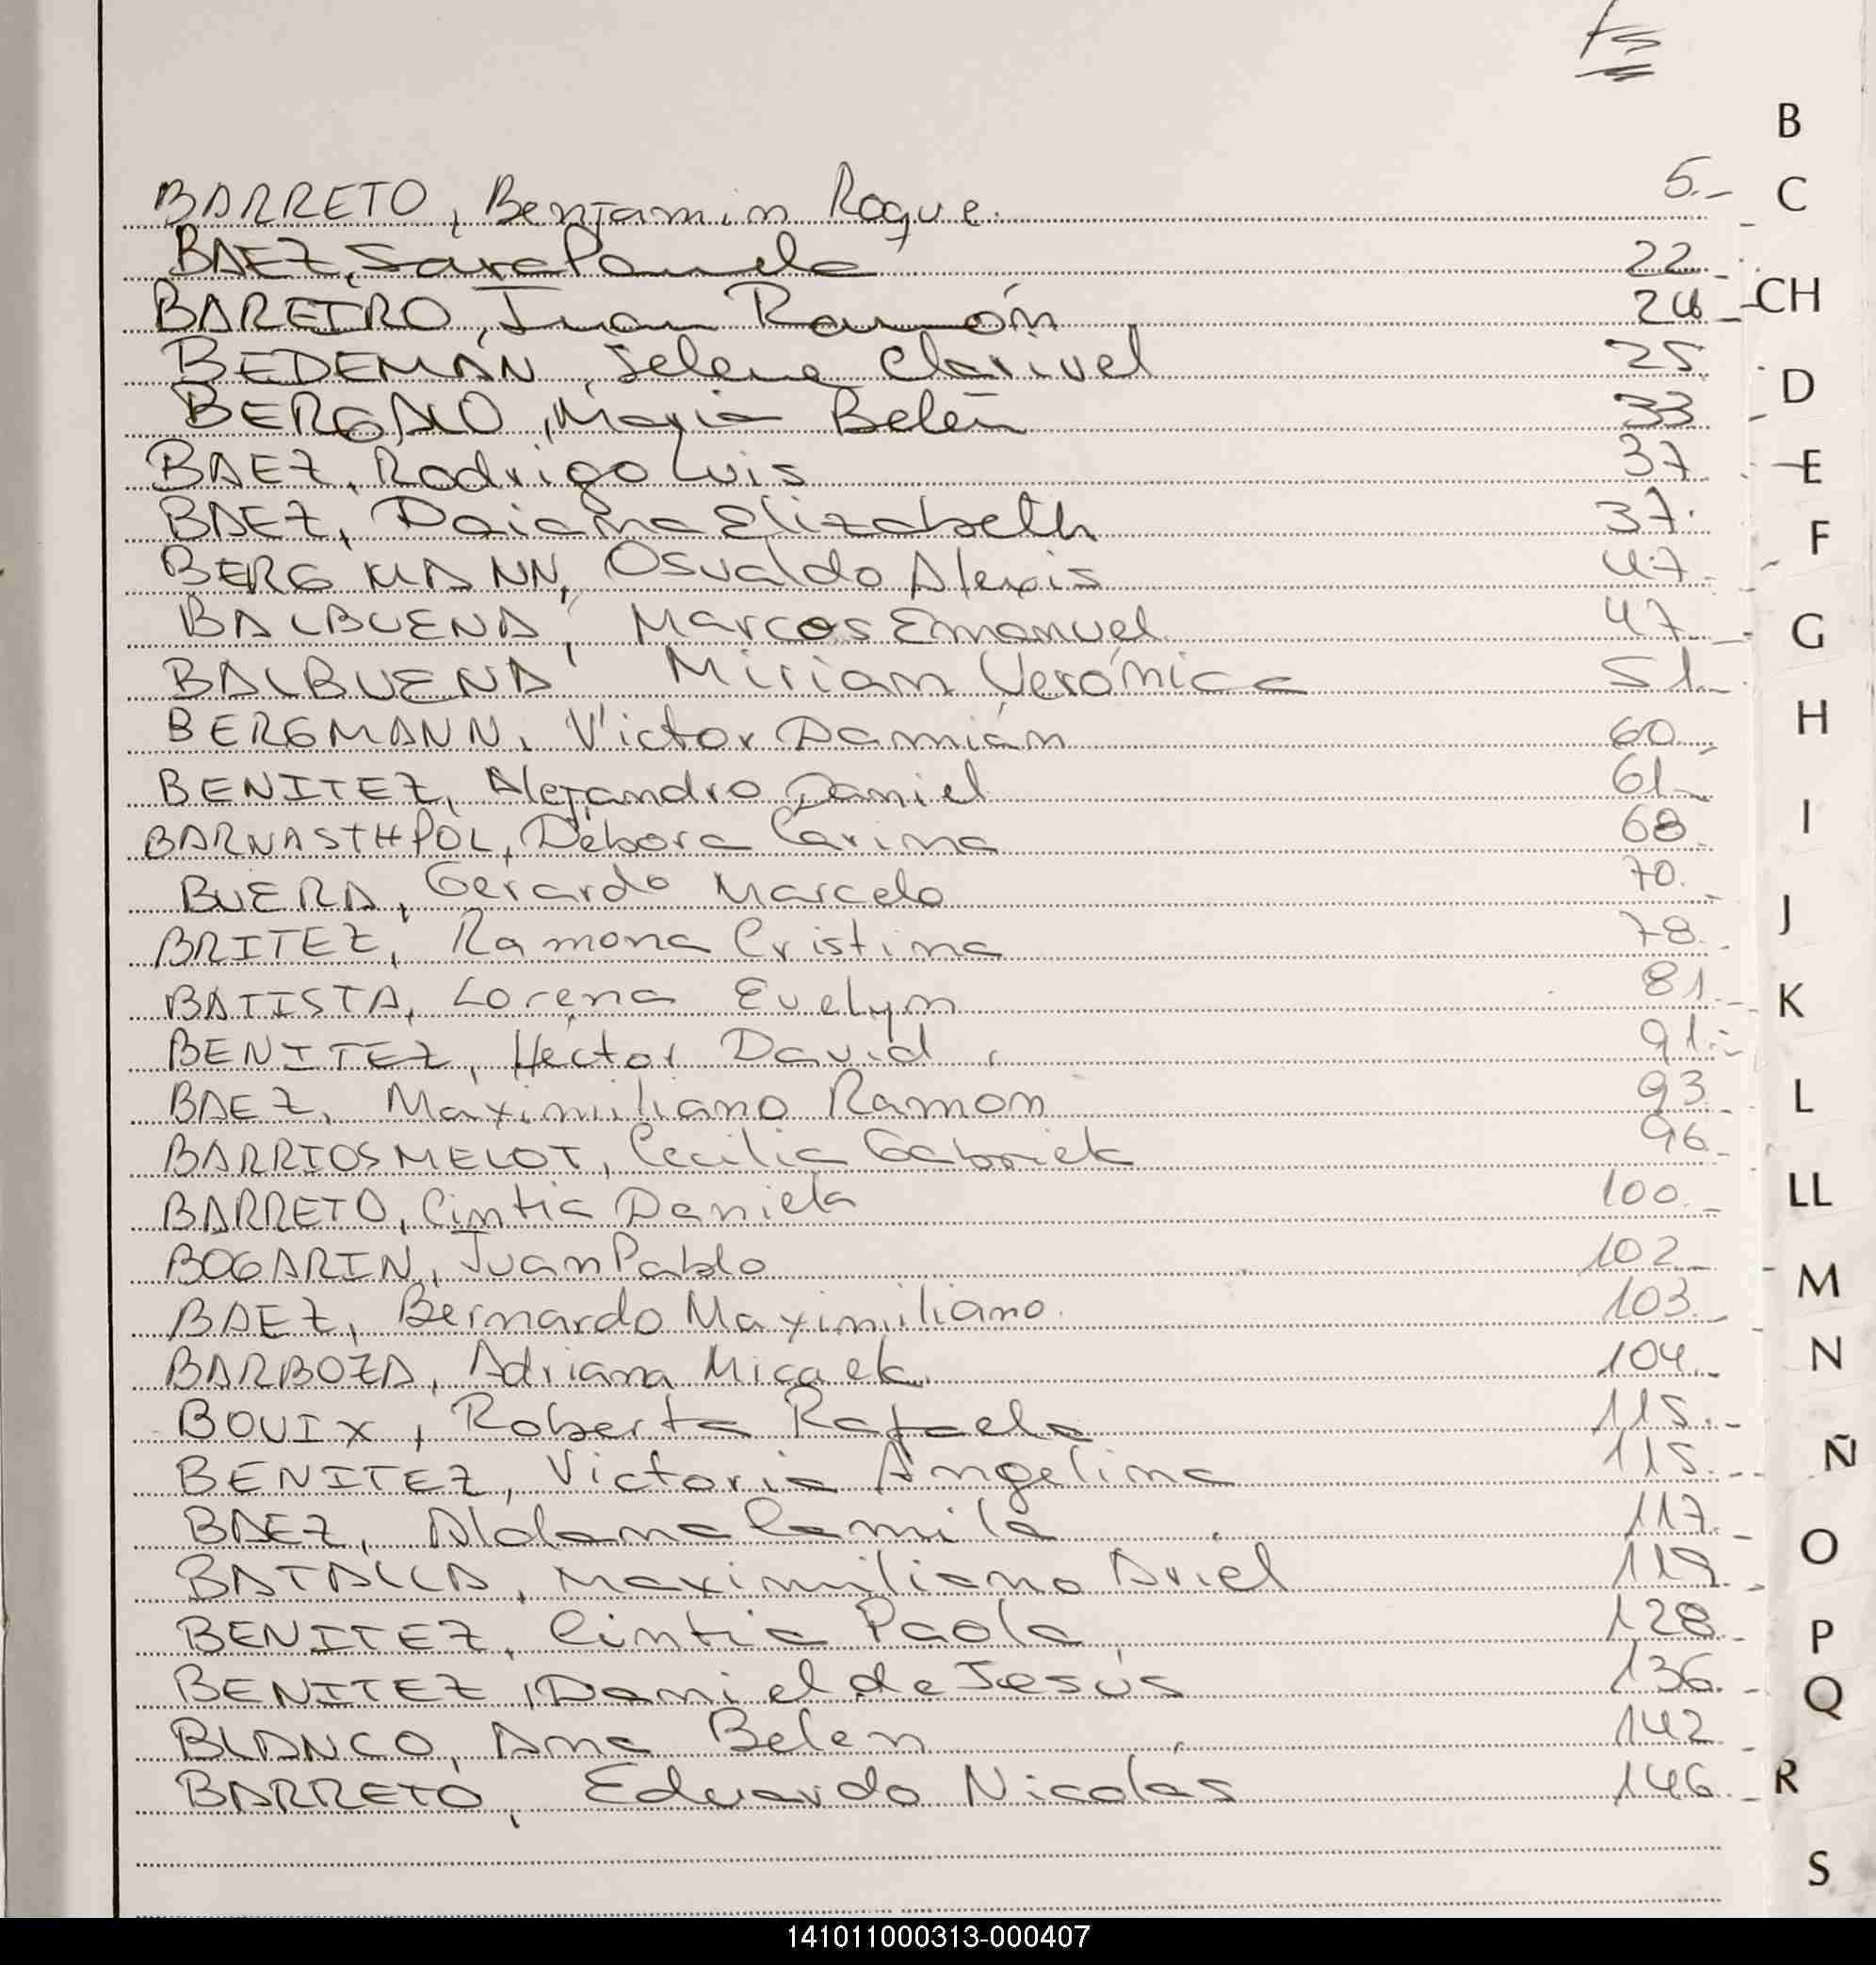 Fs
B
BARRETO, Benjamin Roque. 5.-
C
BAEZ, Sara Pamela 22.-
BAREIRO, Juan Ramón 24-
CH
BEDEMÁN, Selena Clarivel 25
D
María Belén 33
BAEZ, Rodrigo Luis 37
E
BAEZ, Daiana Elizabeth 37.
F
BERGMANN, Osvaldo Alexis 47.-
BALBUENA, Marcos Emanuel 47
G
BALBUENA Miriam Verónica 51.-
H
BERGMANN, Victor Damián 60.-
BENITEZ, Alejandro Daniel 61.-
I
BARNASTHPOL, Débora Carina 68
BUERA, Gerardo Marcelo 70.-
J
BRITEZ, Ramona Cristina 78.-
K
BATISTA, Lorena Evelyn 81.-
BENITEZ, Héctor David 91.-
L
BAEZ, Maximiliano Ramón 93.-
BARRIOS MELOT, Cecilia Gabriela 96.-
LL
BARRETO, Cintia Daniela 100.-
BOGARIN, Juan Pablo 102.-
M
BAEZ, Bernardo Maximiliano. 103.-
N
BARBOZA, Adriana Micaela. 104.-
BOUIX, Roberta Rafaela 115.-
Ñ
BENITEZ, Victoria Angelina 115.-
BAEZ, Aldana Camila 117.-
O
BATALLA, Maximiliano Ariel 119.-
BENITEZ, Cintia Paola 128.-
P
BENITEZ, Daniel de Jesús 136.-
Q
BLANCO, Ana Belen 142.-
BARRETO, Eduardo Nicolás 146.-
R
S
141011000313-000407